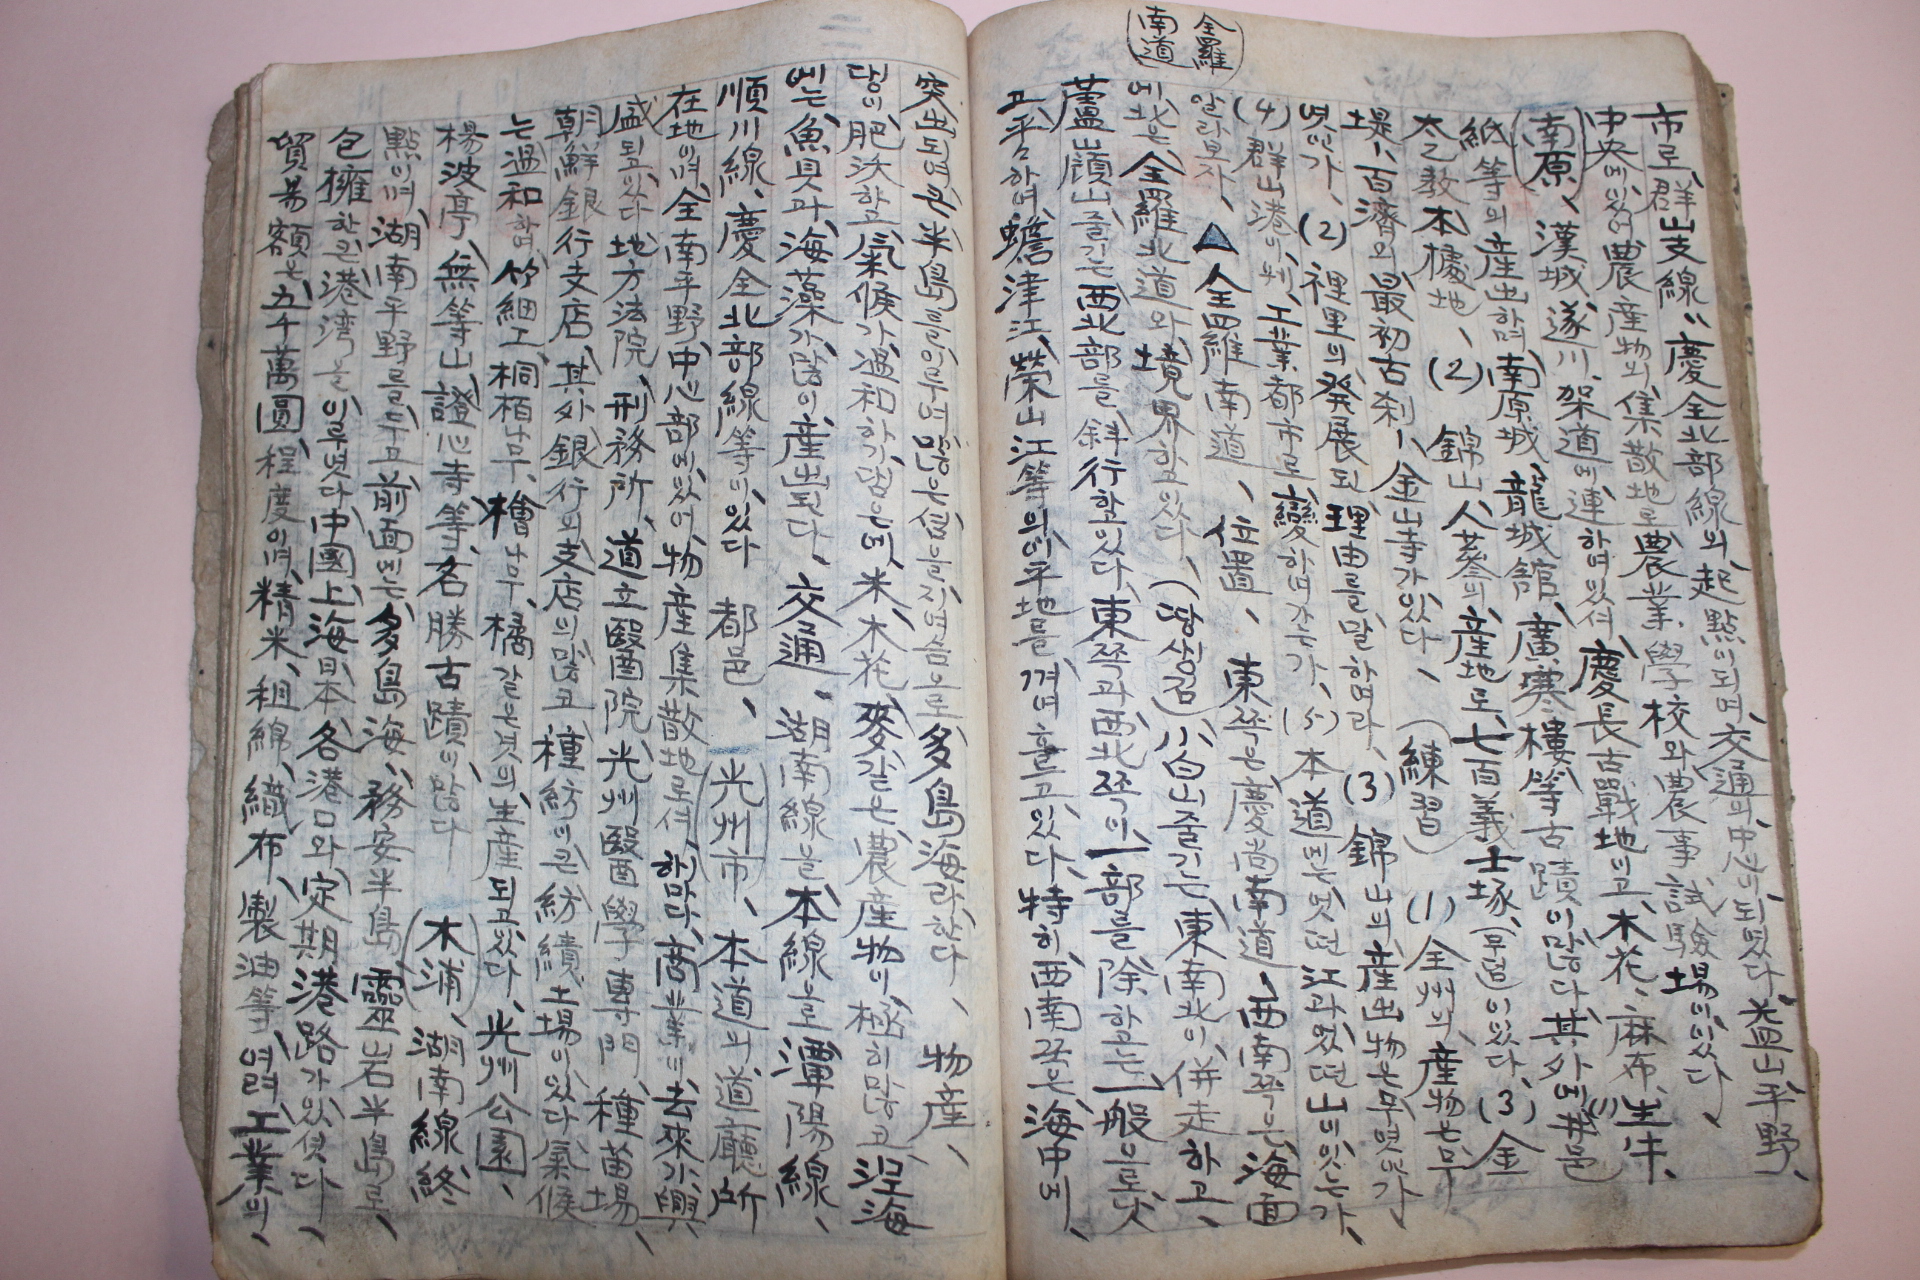 全羅
南道
市로 群山支線、慶全北部線의 起點이되며 交通의 中心이되었다 益山平野、
中央에있어 農産物의 集散地로 農業學校와 農事試驗場이있다
(南原)、漢城、遂川、架道에 連하여있서 慶長古戰地이고 木花、麻布、生牛、
紙等의 産出하며 南原城、龍城館、廣寒樓等古蹟이많다 其外에 井邑
太乙敎本據地、(2) 錦山人蔘의 産地로 七百義士塚(무덤)이있다、(3) 金
堤、百濟의 最初古刹、金山寺가있다、(練習) (1) 全州의 産物은무
엇인가、(2) 裡里의 發展된 理由를말하여라、(3) 錦山의 産出物은무엇인가
(4) 群山港이 工業都市로 變하여가는가、(5) 本道에는엇던 江과엇던 山이있는가、
알라보자、▲全羅南道、位置、東쪽은慶尙南道、西南쪽은海面
에北은 全羅北道와 境界하고있다、(땅생김) 小白山줄기는東南北이併走하고、
蘆嶺山줄기는西北部를 斜行하고있다、東쪽과西北쪽의一部를除하고는一般으로낮
고平탄하며 蟾津江、榮山江等의이平地를껴며흘으고있다、特히西南쪽은海中에、
突出되여큰半島를일우며많은섬들지으로多島海라한다、物産、
땅이肥沃하고氣候가溫和한가닭은에、米、木花、麥갈은農産物이極히많고沿海
에는魚貝과海藻가많이産出된다、交通、湖南線을本線으로潭陽線、
順川線、慶全北部線等이있다 都邑、(光州市)、本道의道廳所
在地이며全南平野中心部에있어物産集散地로서商業이去來가興
盛되고있다地方法院、刑務所、道立醫院光州醫學專門種苗場
朝鮮銀行支店、其外銀行의支店이많고種紡이큰紡績工場이있다氣候
는溫和하며、竹細工、桐栢나무、檜나무、橘갈은것의生産되고있다、光州公園、
楊波亭、無等山證心寺等、名勝古蹟이많다 (木浦)、湖南線終
點이며湖南平野를두고前面에는多島海、務安半島靈岩半島로、
包擁하는港湾을이루엇다中國上海日本各港口와定期港路가있엇다、
貿易額은五千萬圓程度이며精米、粗綿、織布製油等여러工業의、